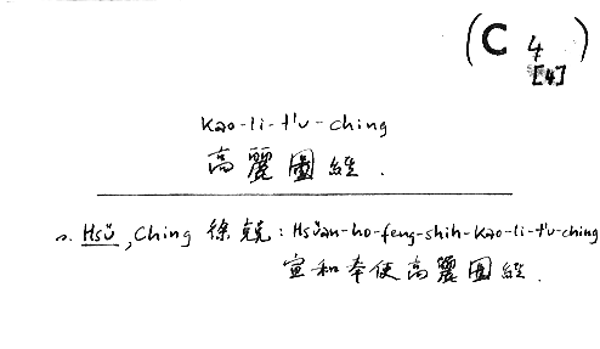 (C 4)
[4]
Kao-li-t'u-ching
高麗圖経.
n. Hsü, Ching 徐兢: Hsüan-ho-feng-shih-Kao-li-t'u-ching
宣和奉使高麗図経.